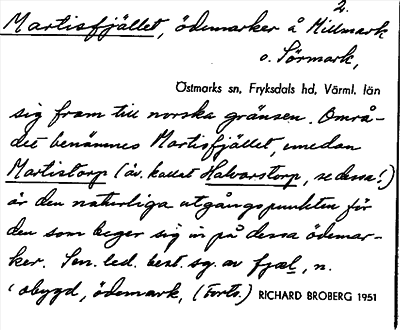 2.
Martisfjället, ödemarker å Millmark
o. Sörmark,
Östmarks sn, Fryksdals hd, Värml. län
sig fram till norska gränsen. Områ-
det benämnes Martisfjället, medan
Martistorp (äv. kallat Halvarstorp, se dessa!)
är den naturliga utgångspunkten för
den som beger sig in på dessa ödemar-
ker. Sen. led. best. sg. av fjæl, n.
'obygd, ödemark, (Forts.) RICHARD BROBERG 1951